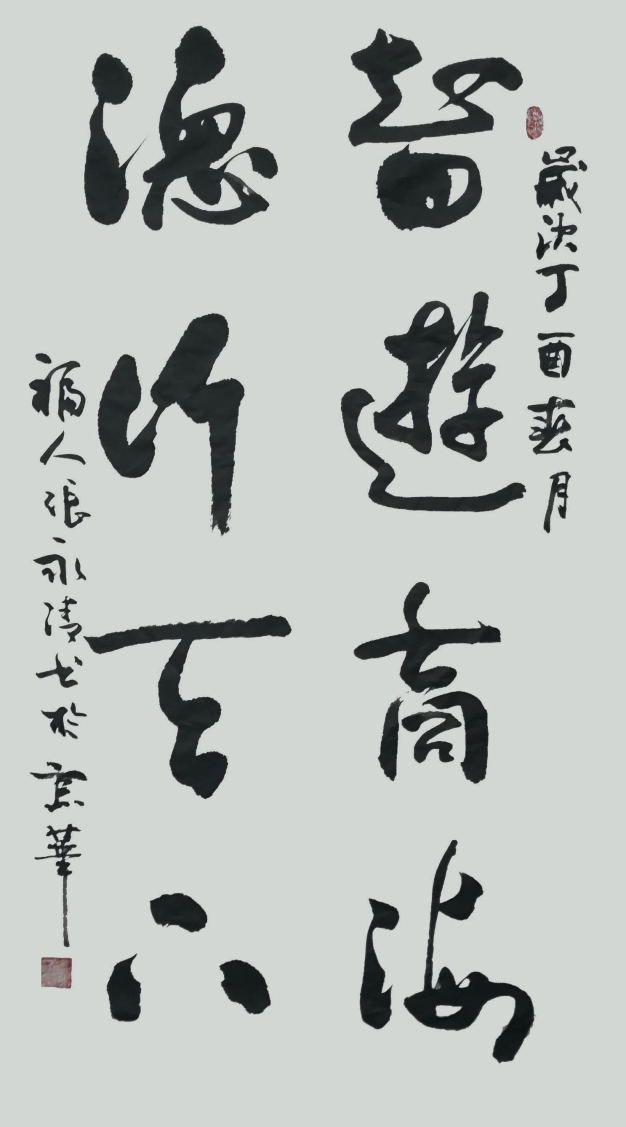 歲次丁酉月
智遊商海
德行天下
福人張永清书於京華